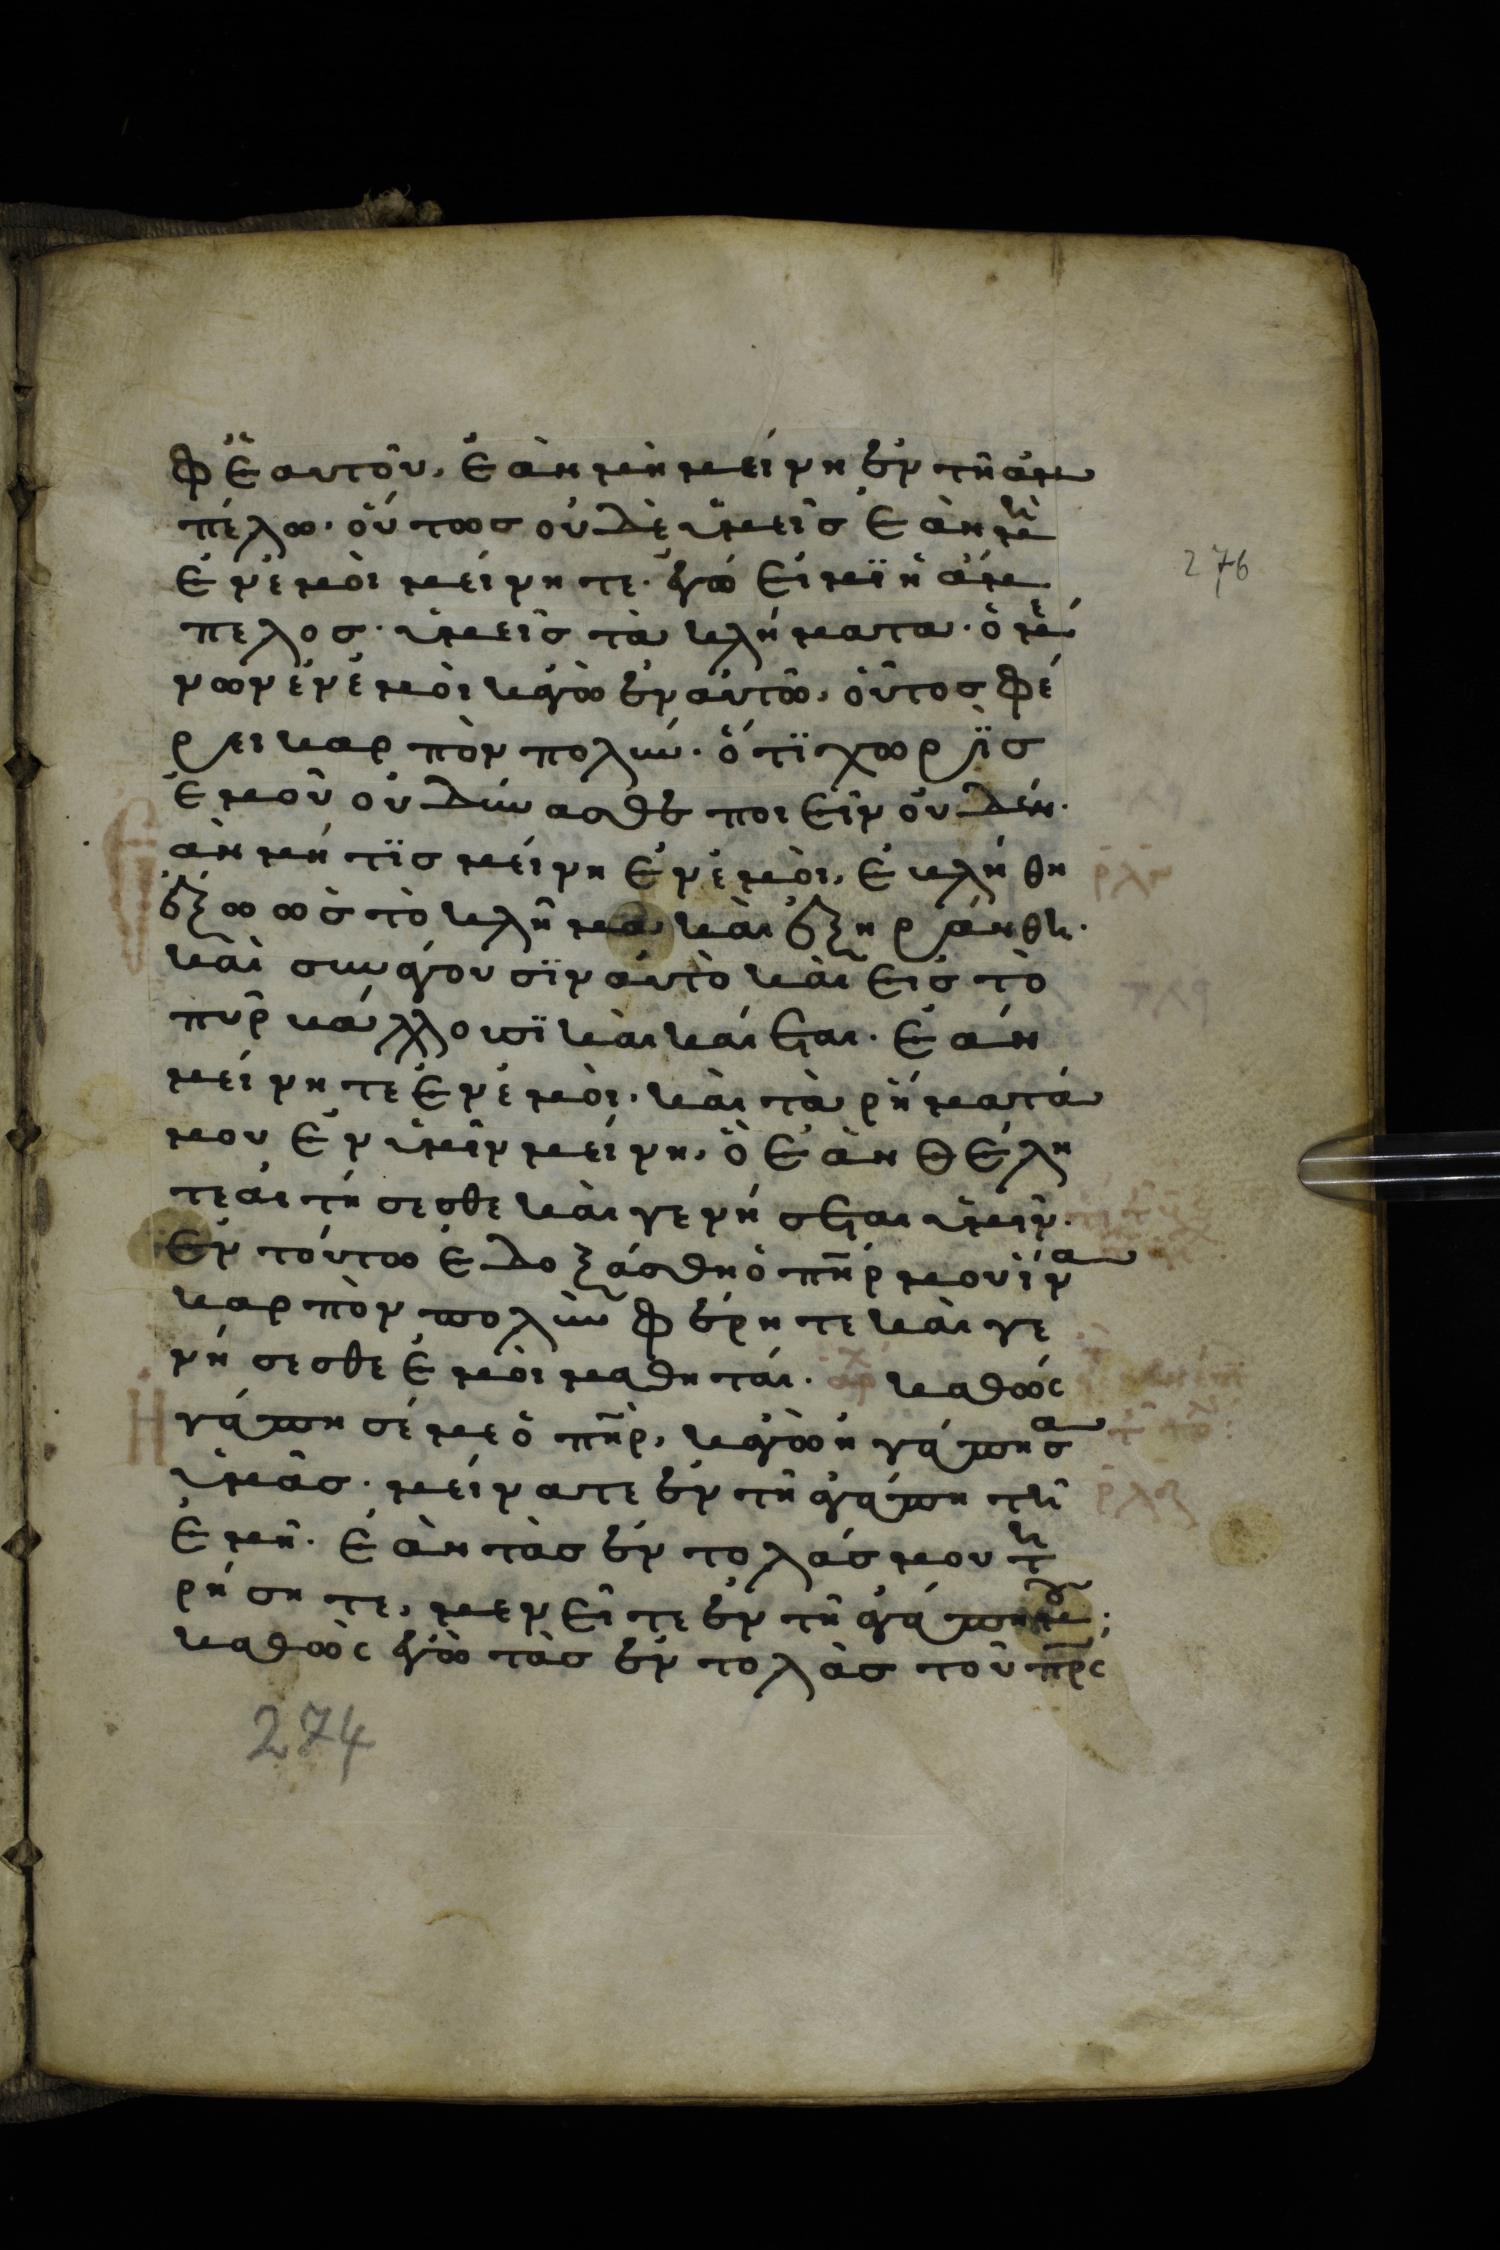 φ' ἑαυτοῦ, ἐὰν μὴ μείνη ἐν τῆ ἀμ
πέλω· οὕτως οὐδὲ ὑμεῖς ἐὰν μὴ
ἐν ἐμοὶ μείνητε· ἐγώ εἰμϊ ἡ ἄμ
πελος· ὑμεῖς τὰ κλήματα· ὁ μέ
νων ἐν ἐμοὶ κἀγὼ ἐν αὐτῶ, οὗτος φέ
ρει καρπὸν πολύν· ὅτϊ χωρϊς
ἐμοῦ οὐ δύνασθε ποιεῖν οὐδέν·
Ἐὰν μή τϊς μείνη ἐν ἐμοὶ, ἐκλήθη
ἔξω ὡς τὸ κλῆμα καὶ ἐξηράνθη·
καὶ συνάγουσϊν αὐτὸ καὶ εἰς τὸ
πῦρ βάλλουσϊ καὶ καίεται· ἐὰν
μείνητε ἐν ἐμοὶ· καὶ τὰ ρήματά
μου ἐν ὑμῖν μείνη, ὃ ἐὰν θέλη
τε αἰτήσεσθε καὶ γενήσεται ὑμῖν·
ἐν τούτω ἐδοξάσθη ὁ πηρ μου ἵνα
καρπὸν πολὺν φέρητε καὶ γε
νήσεσθε ἐμοὶ μαθηταί· αρχ καθὼς
Ἠγάπησέ με ὁ πηρ, κἀγὼ ἠγάπησα
ὑμᾶς· μείνατε ἐν τῆ ἀγάπη τῆ
ἐμῆ· ἐὰν τὰς ἐντολάς μου τη
ρήσητε, μενεῖτε ἐν τῆ ἀγάπη μου·
καθὼς ἐγὼ τὰς ἐντολὰς τοῦ πρς
276
ρλζ
274